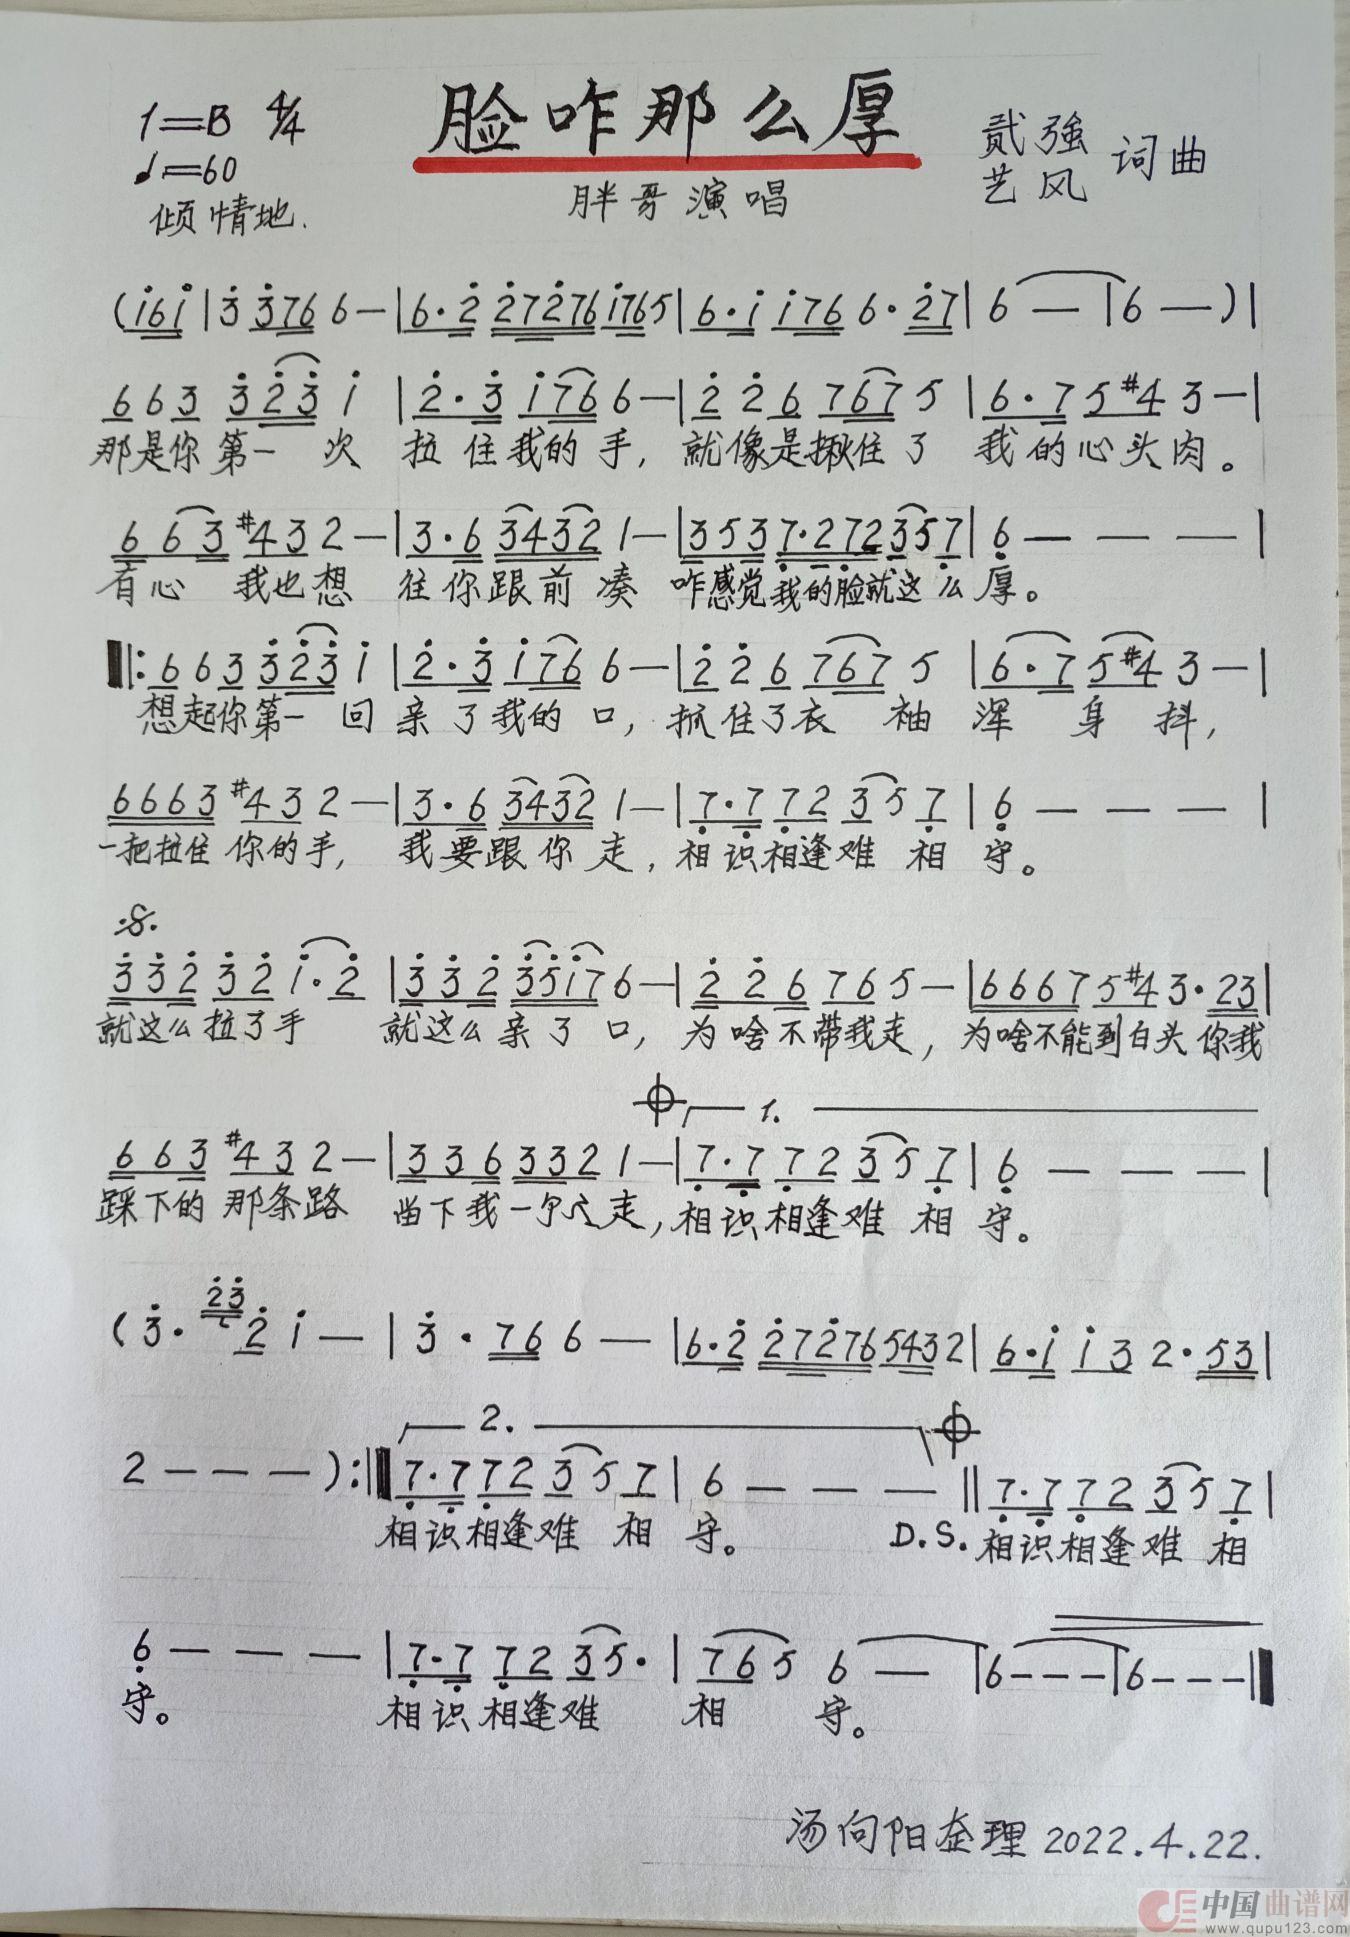 脸咋那么厚
1=B 4/4
♩=60
倾情地.
贰强
艺风 词曲
胖哥演唱
(i̇6i̇ | 3̇ 3̇76 6 — | 6·2̇ 2̇72̇76 i̇765 | 6·i̇ i̇76 6·2̇7 | 6 — | 6 — ) |
663 3̇2̇3̇ i̇ | 2̇·3̇ i̇76 6 — | 2̇ 2̇ 6 767 5 | 6·7 5#4 3 — |
那是你第一 次 拉住我的手, 就像是揪住了 我的心头肉。
6 63 #43 2 — | 3·6 3432 1 — | 353 7̣·2̣7̣2 357̣ | 6̣ — — — |
有心 我也想 往你跟前凑 咋感觉我的脸就这么厚。
‖: 663 3̇2̇3̇ i̇ | 2̇·3̇ i̇76 6 — | 2̇ 2̇ 6 767 5 | 6·7 5#4 3 — |
想起你第一 回 亲了我的口, 抓住了衣 袖 浑 身 抖,
6663 #43 2 — | 3·6 3432 1 — | 7̣·7̣ 7̣2 35 7̣ | 6̣ — — — |
一把拉住你的手, 我要跟你走, 相识相逢难 相 守。
𝄋
3̇3̇2̇ 3̇2̇ i̇·2̇ | 3̇3̇2̇ 3̇5̇i̇7 6 — | 2̇ 2̇ 6 76 5 — | 6667 5#4 3·23 |
就这么拉了手 就这么亲了口, 为啥不带我走, 为啥不能到白头你我
𝄌 1.
663 #43 2 — | 336 332 1 — | 7̣·7̣ 7̣2 35 7̣ | 6̣ — — — |
踩下的那条路 当下我一个人走, 相识相逢难 相 守。
( 3̇· 2̇3̇ 2̇ i̇ — | 3̇· 76 6 — | 6·2̇ 2̇72̇76 5432 | 6·i̇ i̇3 2·53 |
2. 𝄌
2 — — — ) :‖ 7̣·7̣ 7̣2 35 7̣ | 6 — — — ‖ 7̣·7̣ 7̣2 35 7̣ |
相识相逢难 相 守。 D.S. 相识相逢难 相
6̣ — — — | 7̣·7̣ 7̣2 35· | 765 6 — | 6 - - - | 6 - - - ‖
守。 相识相逢难 相 守。
汤向阳 整理 2022.4.22.
中国曲谱网
www.qupu123.com